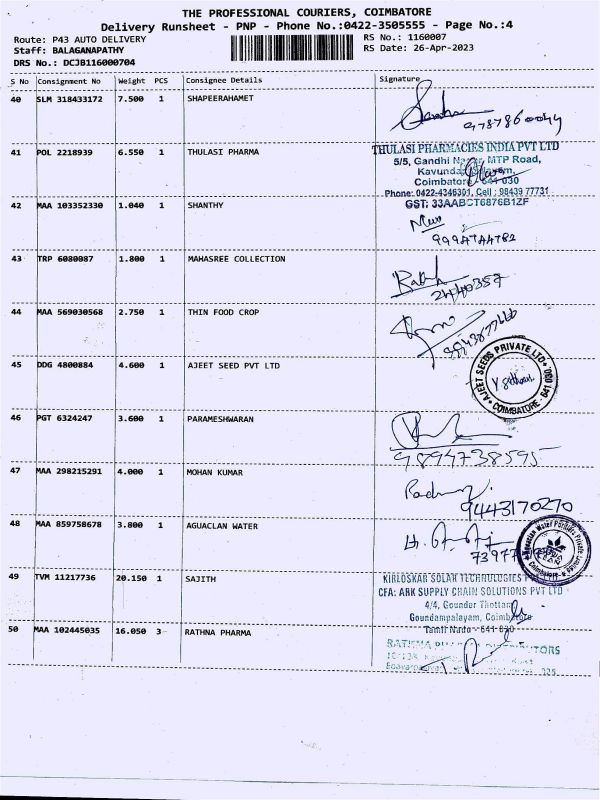 THE PROFESSIONAL COURIERS, COIMBATORE
Delivery Runsheet - PNP - Phone No.:0422-3505555 - Page No.:4
Route: P43 AUTO DELIVERY RS No.: 1160007
Staff: BALAGANAPATHY RS Date: 26-Apr-2023
DRS No.: DCJB116000704
S No Consignment No Weight PCS Consignee Details Signature
40 SLM 318433172 7.500 1 SHAPEERAHAMET
9787860044
41 POL 2218939 6.550 1 THULASI PHARMA
THULASI PHARMACIES INDIA PVT LTD
5/5, Gandhi Nagar, MTP Road,
Coimbatore 641 030
Phone: 0422-4346301, Cell : 98439 77731
GST: 33AABCT6876B1ZF
42 MAA 103352330 1.040 1 SHANTHY
9994744782
43 TRP 6080087 1.800 1 MAHASREE COLLECTION
44 MAA 569030568 2.750 1 THIN FOOD CROP
45 DDG 4800884 4.600 1 AJEET SEED PVT LTD
AJEET SEEDS PRIVATE LTD
COIMBATORE - 641 030
46 PGT 6324247 3.600 1 PARAMESHWARAN
9894738595
47 MAA 298215291 4.000 1 MOHAN KUMAR
9443170270
48 MAA 859758678 3.800 1 AGUACLAN WATER
49 TVM 11217736 20.150 1 SAJITH
KIRLOSKAR SOLAR TECHNOLOGIES PVT LTD
CFA: ARK SUPPLY CHAIN SOLUTIONS PVT LTD
4/4, Gounder Thottam
Goundampalayam, Coimbatore
Tamil Nadu - 641 030
50 MAA 102445035 16.050 3 RATHNA PHARMA